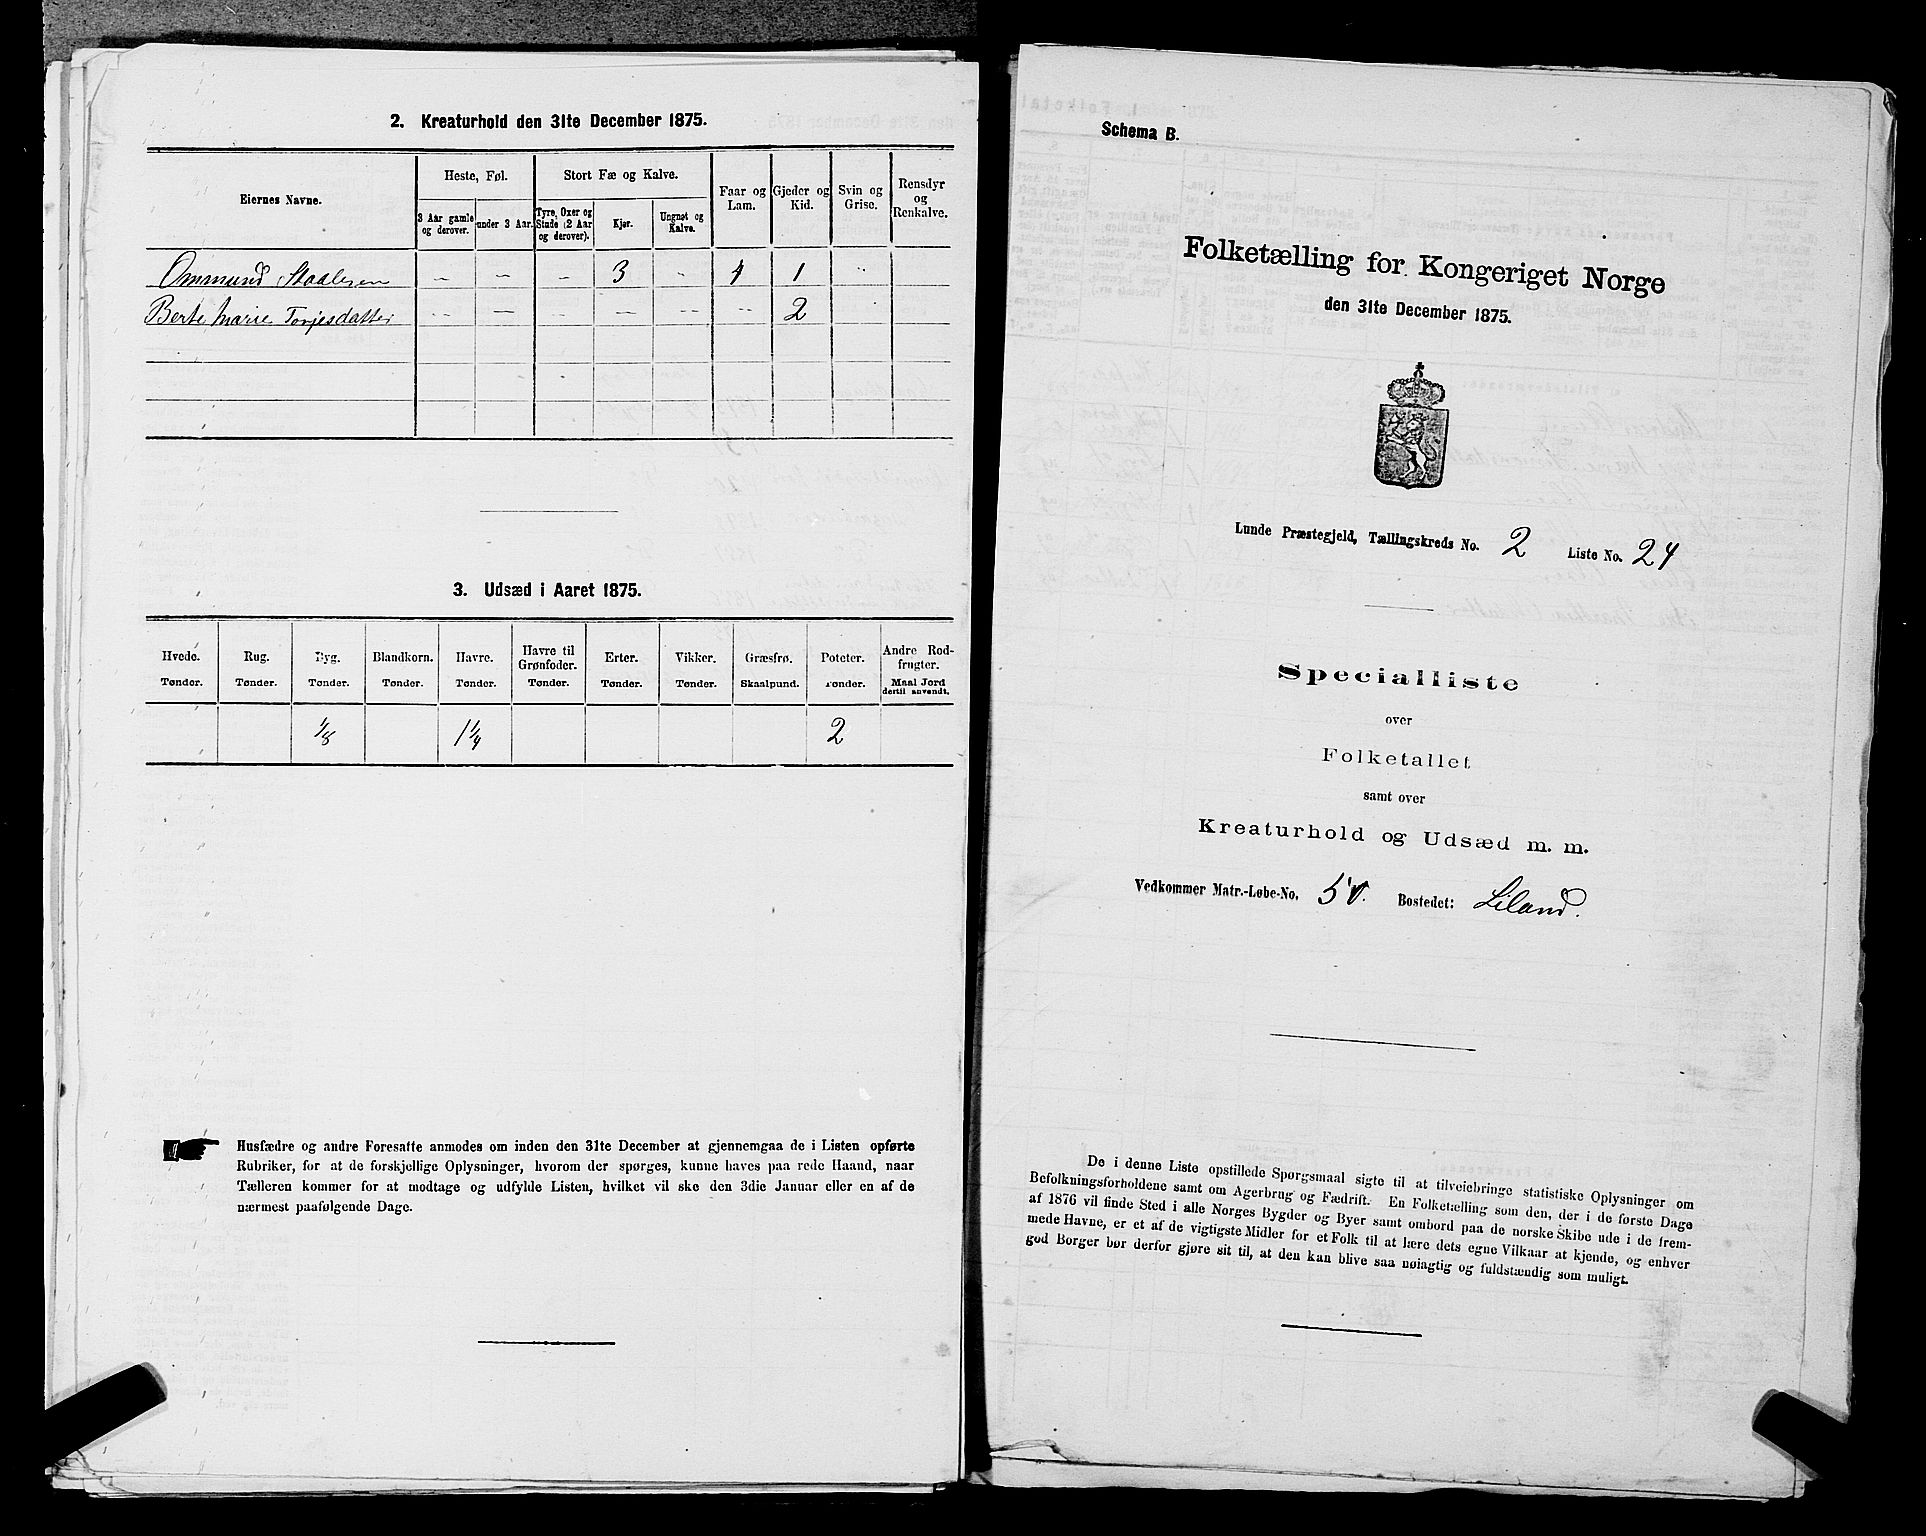 2. Kreaturhold den 31te December 1875.
Eiernes Navne.
Heste, Føl.
Stort Fæ og Kalve.
Faar og Lam.
Gjeder og Kid.
Svin og Grise.
Rensdyr og Renkalve.
3 Aar gamle og derover.
under 3 Aar.
Tyre, Oxer og Stude (2 Aar og derover).
Kjør.
Ungnøt og Kalve.
Ommund Staalesen – – – 3 – 4 1 –
Berte Marie Torjesdatter – – – – – – 2
3. Udsæd i Aaret 1875.
Hvede. Rug. Byg. Blandkorn. Havre. Havre til Grønfoder. Erter. Vikker. Græsfrø. Poteter. Andre Rodfrugter.
Tønder. Tønder. Tønder. Tønder. Tønder. Tønder. Tønder. Tønder. Skaalpund. Tønder. Maal Jord dertil anvendt.
1/8 1 1/4 2
Husfædre og andre Foresatte anmodes om inden den 31te December at gjennemgaa de i Listen opførte
Rubriker, for at de forskjellige Oplysninger, hvorom der spørges, kunne haves paa rede Haand, naar
Tælleren kommer for at modtage og udfylde Listen, hvilket vil ske den 3die Januar eller en af de
nærmest paafølgende Dage.
Schema B.
Folketælling for Kongeriget Norge
den 31te December 1875.
Lunde Præstegjeld, Tællingskreds No. 2 Liste No. 24
Specialliste
over
Folketallet
samt over
Kreaturhold og Udsæd m. m.
Vedkommer Matr.-Løbe-No. 50. Bostedet: Liland.
De i denne Liste opstillede Spørgsmaal sigte til at tilveiebringe statistiske Oplysninger om
Befolkningsforholdene samt om Agerbrug og Fædrift. En Folketælling som den, der i de første Dage
af 1876 vil finde Sted i alle Norges Bygder og Byer samt ombord paa de norske Skibe ude i de frem-
mede Havne, er et af de vigtigste Midler for et Folk til at lære dets egne Vilkaar at kjende, og enhver
god Borger bør derfor gjøre sit til, at den kan blive saa nøiagtig og fuldstændig som muligt.